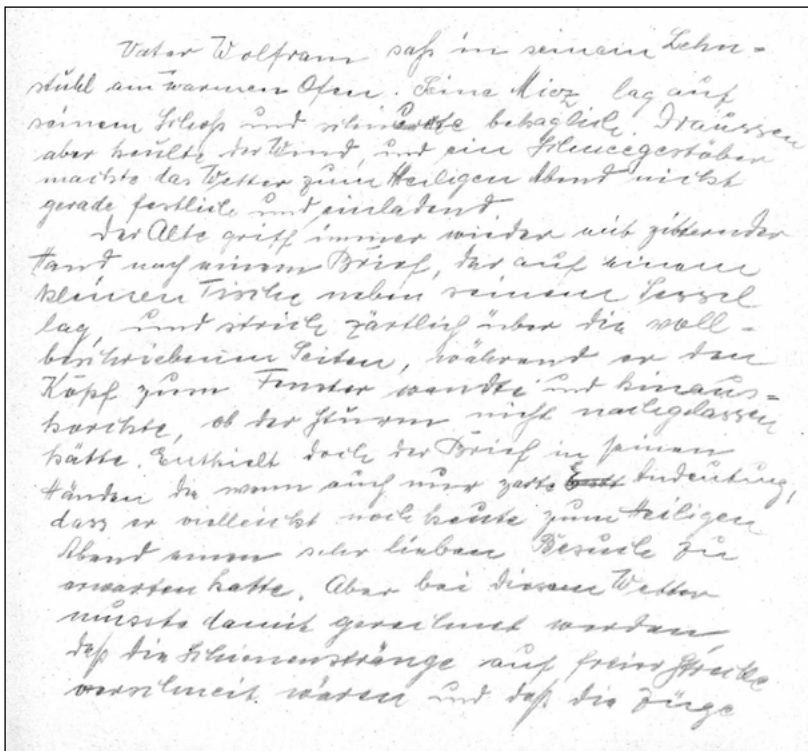 Vater Wolfram saß in seinem Lehn=
stuhl am warmen Ofen. Seine Miez lag auf
seinem Schoß und schnurrte behaglich. Draussen
aber heulte der Wind, und ein Schneegestöber
machte das Wetter zum Heiligen Abend nicht
gerade festlich und einladend.
Der Alte griff immer wieder mit zitternder
Hand nach einem Brief, der auf einem
kleinen Tische neben seinem Sessel
lag, und strich zärtlich über die voll=
beschriebenen Seiten, während er den
Kopf zum Fenster wandte und hinaus=
horchte, ob der Sturm nicht nachgelassen
hätte. Enthielt doch der Brief in seinen
Händen die wenn auch nur zarte Andeutung,
dass er vielleicht noch heute zum Heiligen
Abend einen sehr lieben Besuch zu
erwarten hatte. Aber bei diesem Wetter
musste damit gerechnet werden,
daß die Schienenstränge auf freier Strecke
verschneit wären und daß die Züge